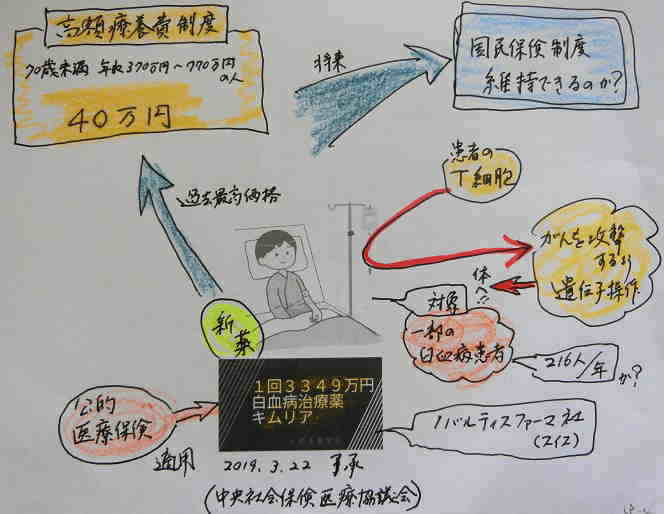 高額療養費制度
70歳未満 年収370万円～770万円
の人
40万円
将来
国民保険制度
維持できるのか？
過去最高価格
患者の
T細胞
がんを攻撃
するよう
遺伝子操作
体へ!!
新薬
対象
一部の
白血病患者
216人/年
か？
1回3349万円
白血病治療薬
キムリア
公的
医療保険
適用
2019.3.22 了承
(中央社会保険医療協議会)
ノバルティスファーマ社
(スイス)